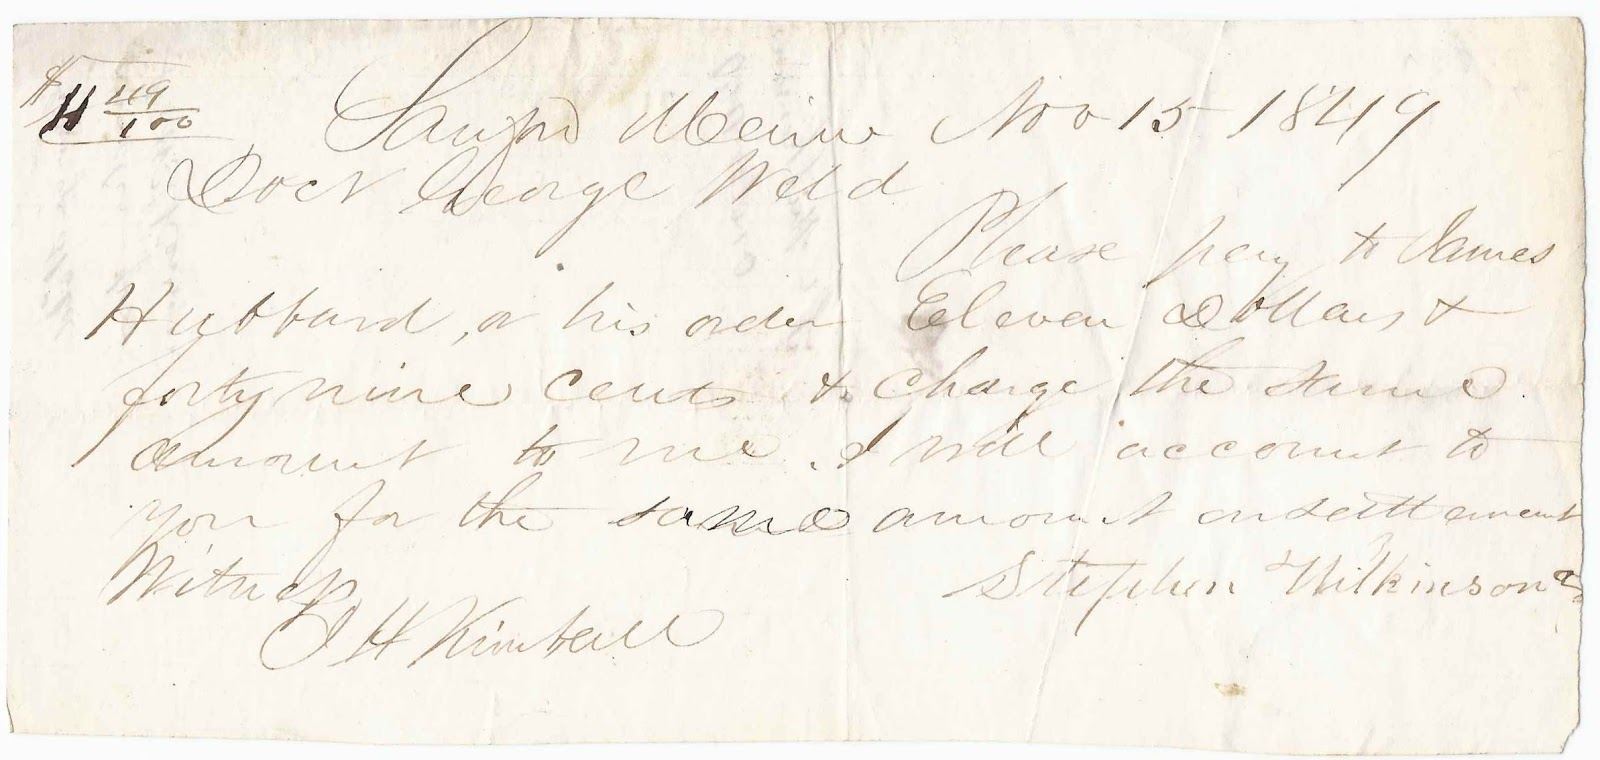 $11 49/100
Sanford Maine Nov 15 1849
Doct George Weld
Please pay to James
Hubbard, or his order Eleven Dollars &
forty nine cents & charge the same
amount to me. I will account to
you for the same amount on settlement
Witness Stephen Wilkinson
H Kimball